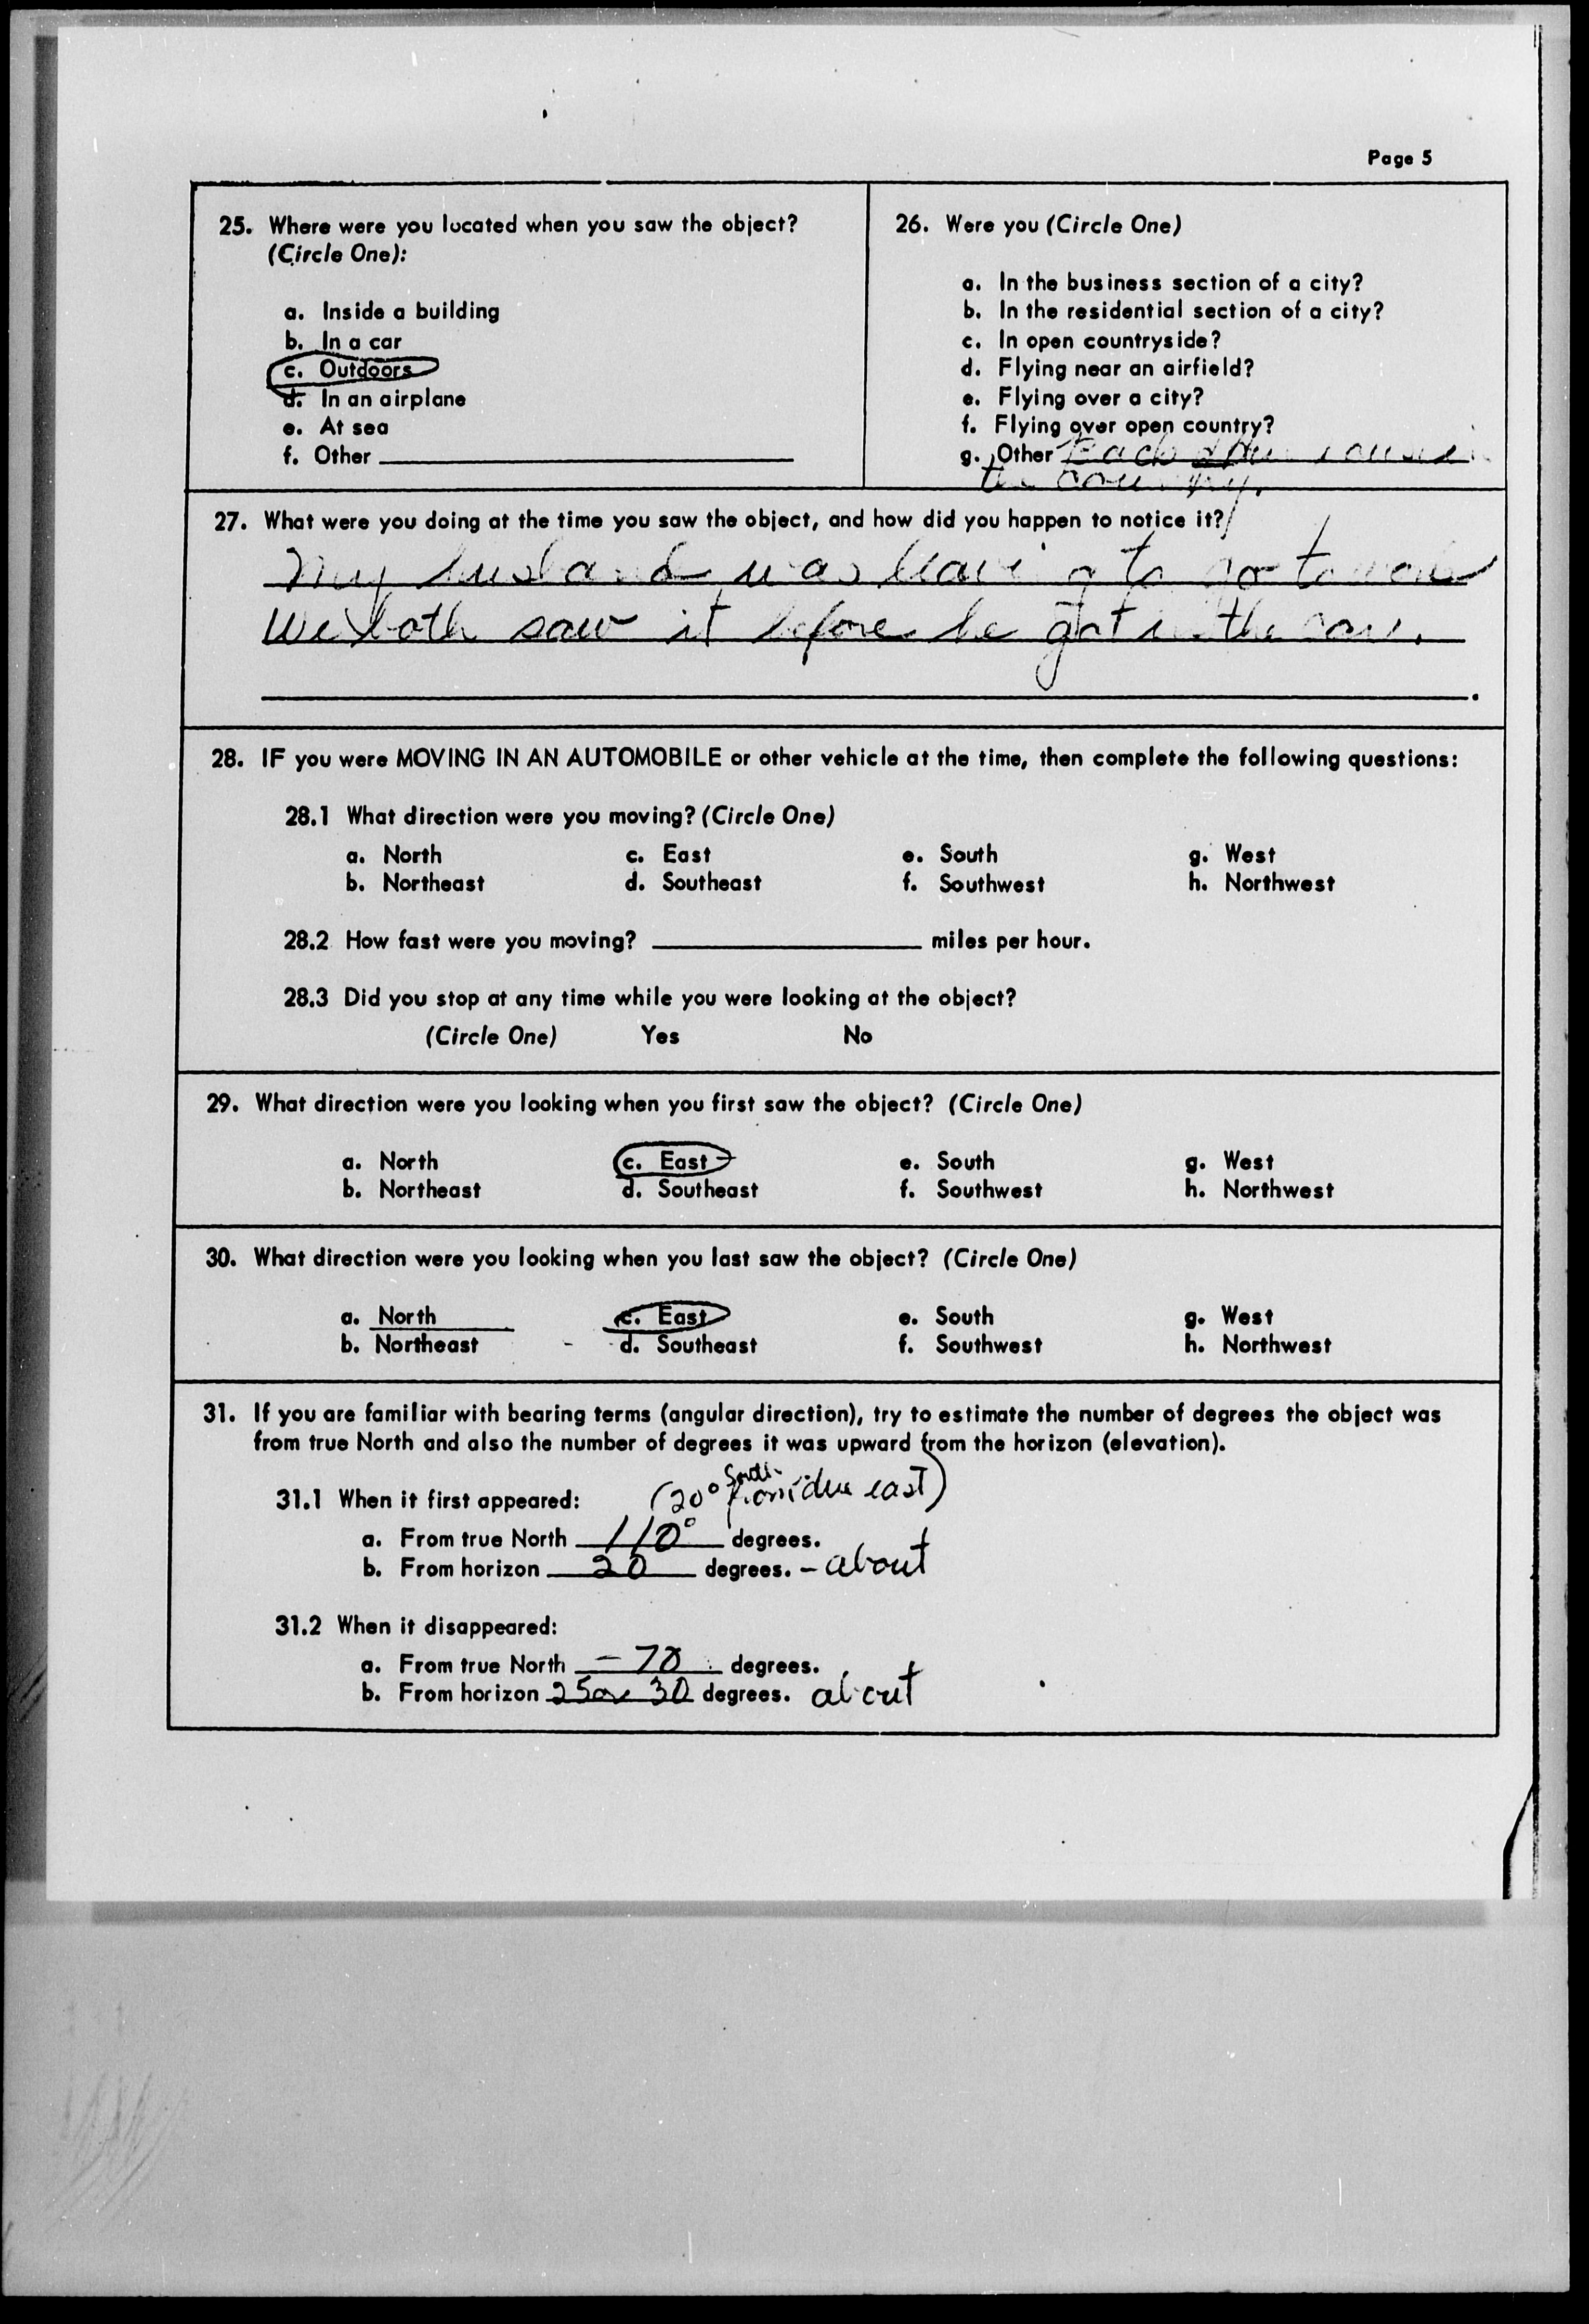 Page 5
25. Where were you located when you saw the object?
(Circle One):
a. Inside a building
b. In a car
c. Outdoors
d. In an airplane
e. At sea
f. Other
26. Were you (Circle One)
a. In the business section of a city?
b. In the residential section of a city?
c. In open countryside?
d. Flying near an airfield?
e. Flying over a city?
f. Flying over open country?
g. Other Back
the country.
27. What were you doing at the time you saw the object, and how did you happen to notice it?
My husband was leaving to go to work
We both saw it before he got in the car.
28. IF you were MOVING IN AN AUTOMOBILE or other vehicle at the time, then complete the following questions:
28.1 What direction were you moving? (Circle One)
a. North c. East e. South g. West
b. Northeast d. Southeast f. Southwest h. Northwest
28.2 How fast were you moving? miles per hour.
28.3 Did you stop at any time while you were looking at the object?
(Circle One) Yes No
29. What direction were you looking when you first saw the object? (Circle One)
a. North c. East e. South g. West
b. Northeast d. Southeast f. Southwest h. Northwest
30. What direction were you looking when you last saw the object? (Circle One)
a. North c. East e. South g. West
b. Northeast d. Southeast f. Southwest h. Northwest
31. If you are familiar with bearing terms (angular direction), try to estimate the number of degrees the object was
from true North and also the number of degrees it was upward from the horizon (elevation).
31.1 When it first appeared: (20° South from due east)
a. From true North 110° degrees.
b. From horizon 20 degrees. - about
31.2 When it disappeared:
a. From true North - 70 degrees.
b. From horizon 25 or 30 degrees. about